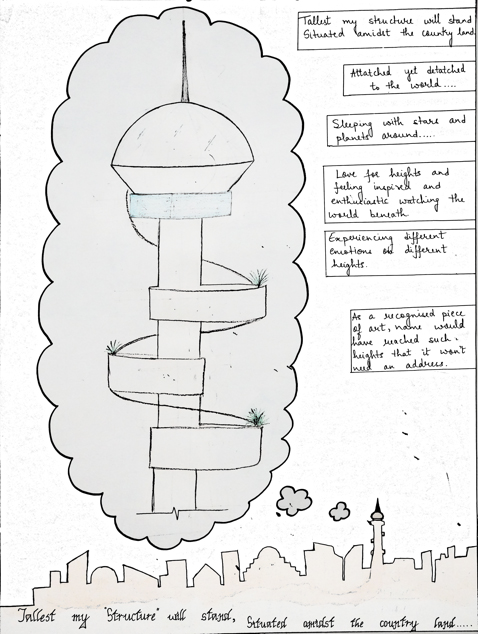 Tallest my structure will stand
Situated amidst the country land
Attatched yet detatched
to the world....
Sleeping with stars and
planets around.....
Love for heights and
feeling inspired and
enthusiastic watching the
world beneath
Experiencing different
emotions on different
heights.
As a recognised piece
of art, name would
have reached such
heights that it won't
need an address.
Tallest my "Structure" will stand, Situated amidst the country land.....